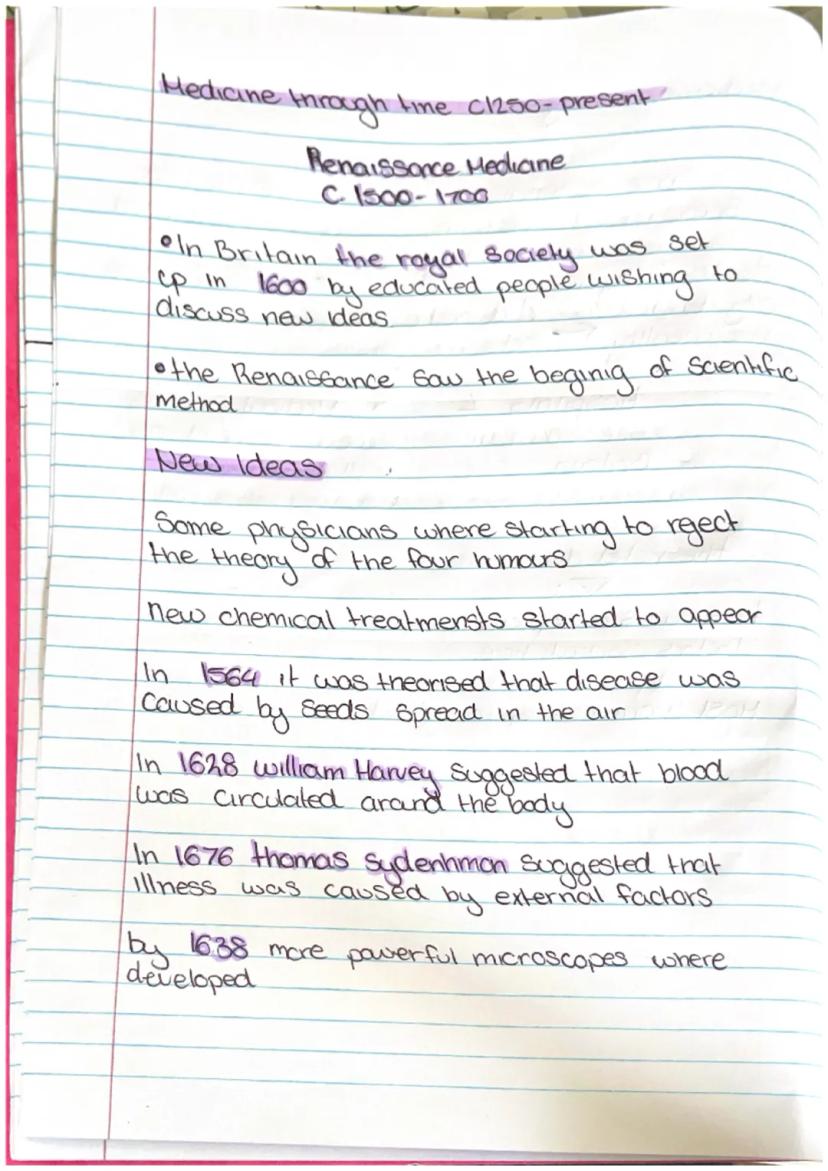 Medicine through time c1250-present
Renaissance Medicine
C. 1500-1700
• In Britain the royal society was set
up in 1600 by educated people wishing to
discuss new ideas
• the Renaissance saw the beginig of scientific
method
New Ideas
Some physicians where starting to reject
the theory of the four humours
new chemical treatmensts started to appear
In 1564 it was theorised that disease was
caused by seeds spread in the air
In 1628 william Harvey suggested that blood
was circulated around the body
In 1676 thomas sydenhman suggested that
illness was caused by external factors
by 1638 more powerful microscopes where
developed